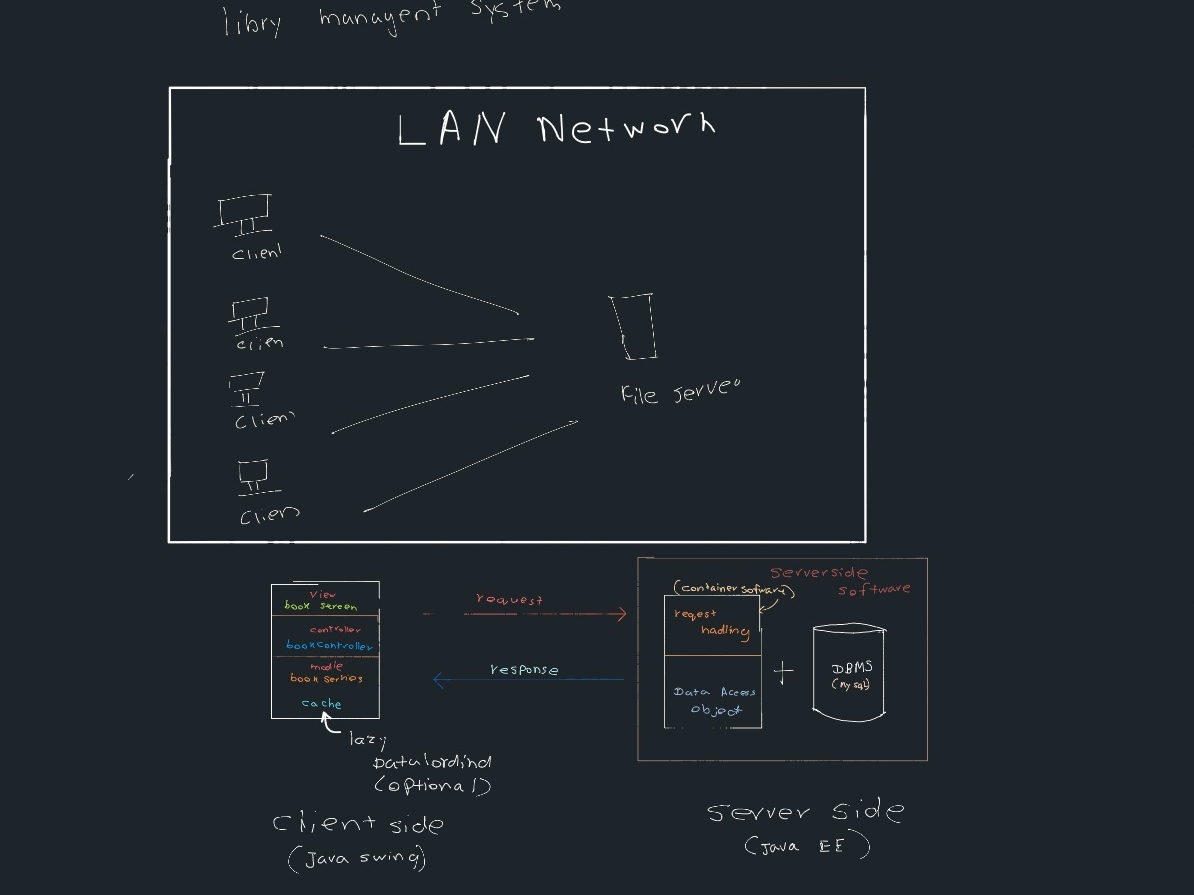 libry managent system
LAN Network
client
clien
client
clien
File server
view
book screen
controller
bookcontroller
modle
book servies
cache
lazy
Datalordind
(optional)
client side
(Java swing)
request
response
serverside
software
(container sofware)
reqest
hadling
Data Access
object
+
DBMS
(mysql)
server side
(Java EE)